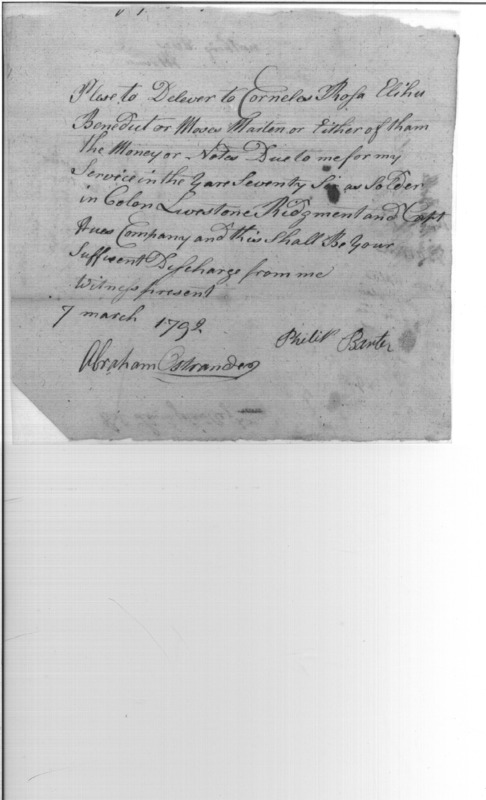 Plese to Deliver to Cornelos Rosa Elihu
Benedict or Moses Marten or Either of tham
the Money or Notes Due to me for my
Service in the Yare Seventy Six as Solder
in Colon Livestone Ridgment and Capt
Hues Company and this Shall Be Your
Suffisent Discharge from me
Witness present
7 march 1792
Philip Baxter
Abraham Ostrander